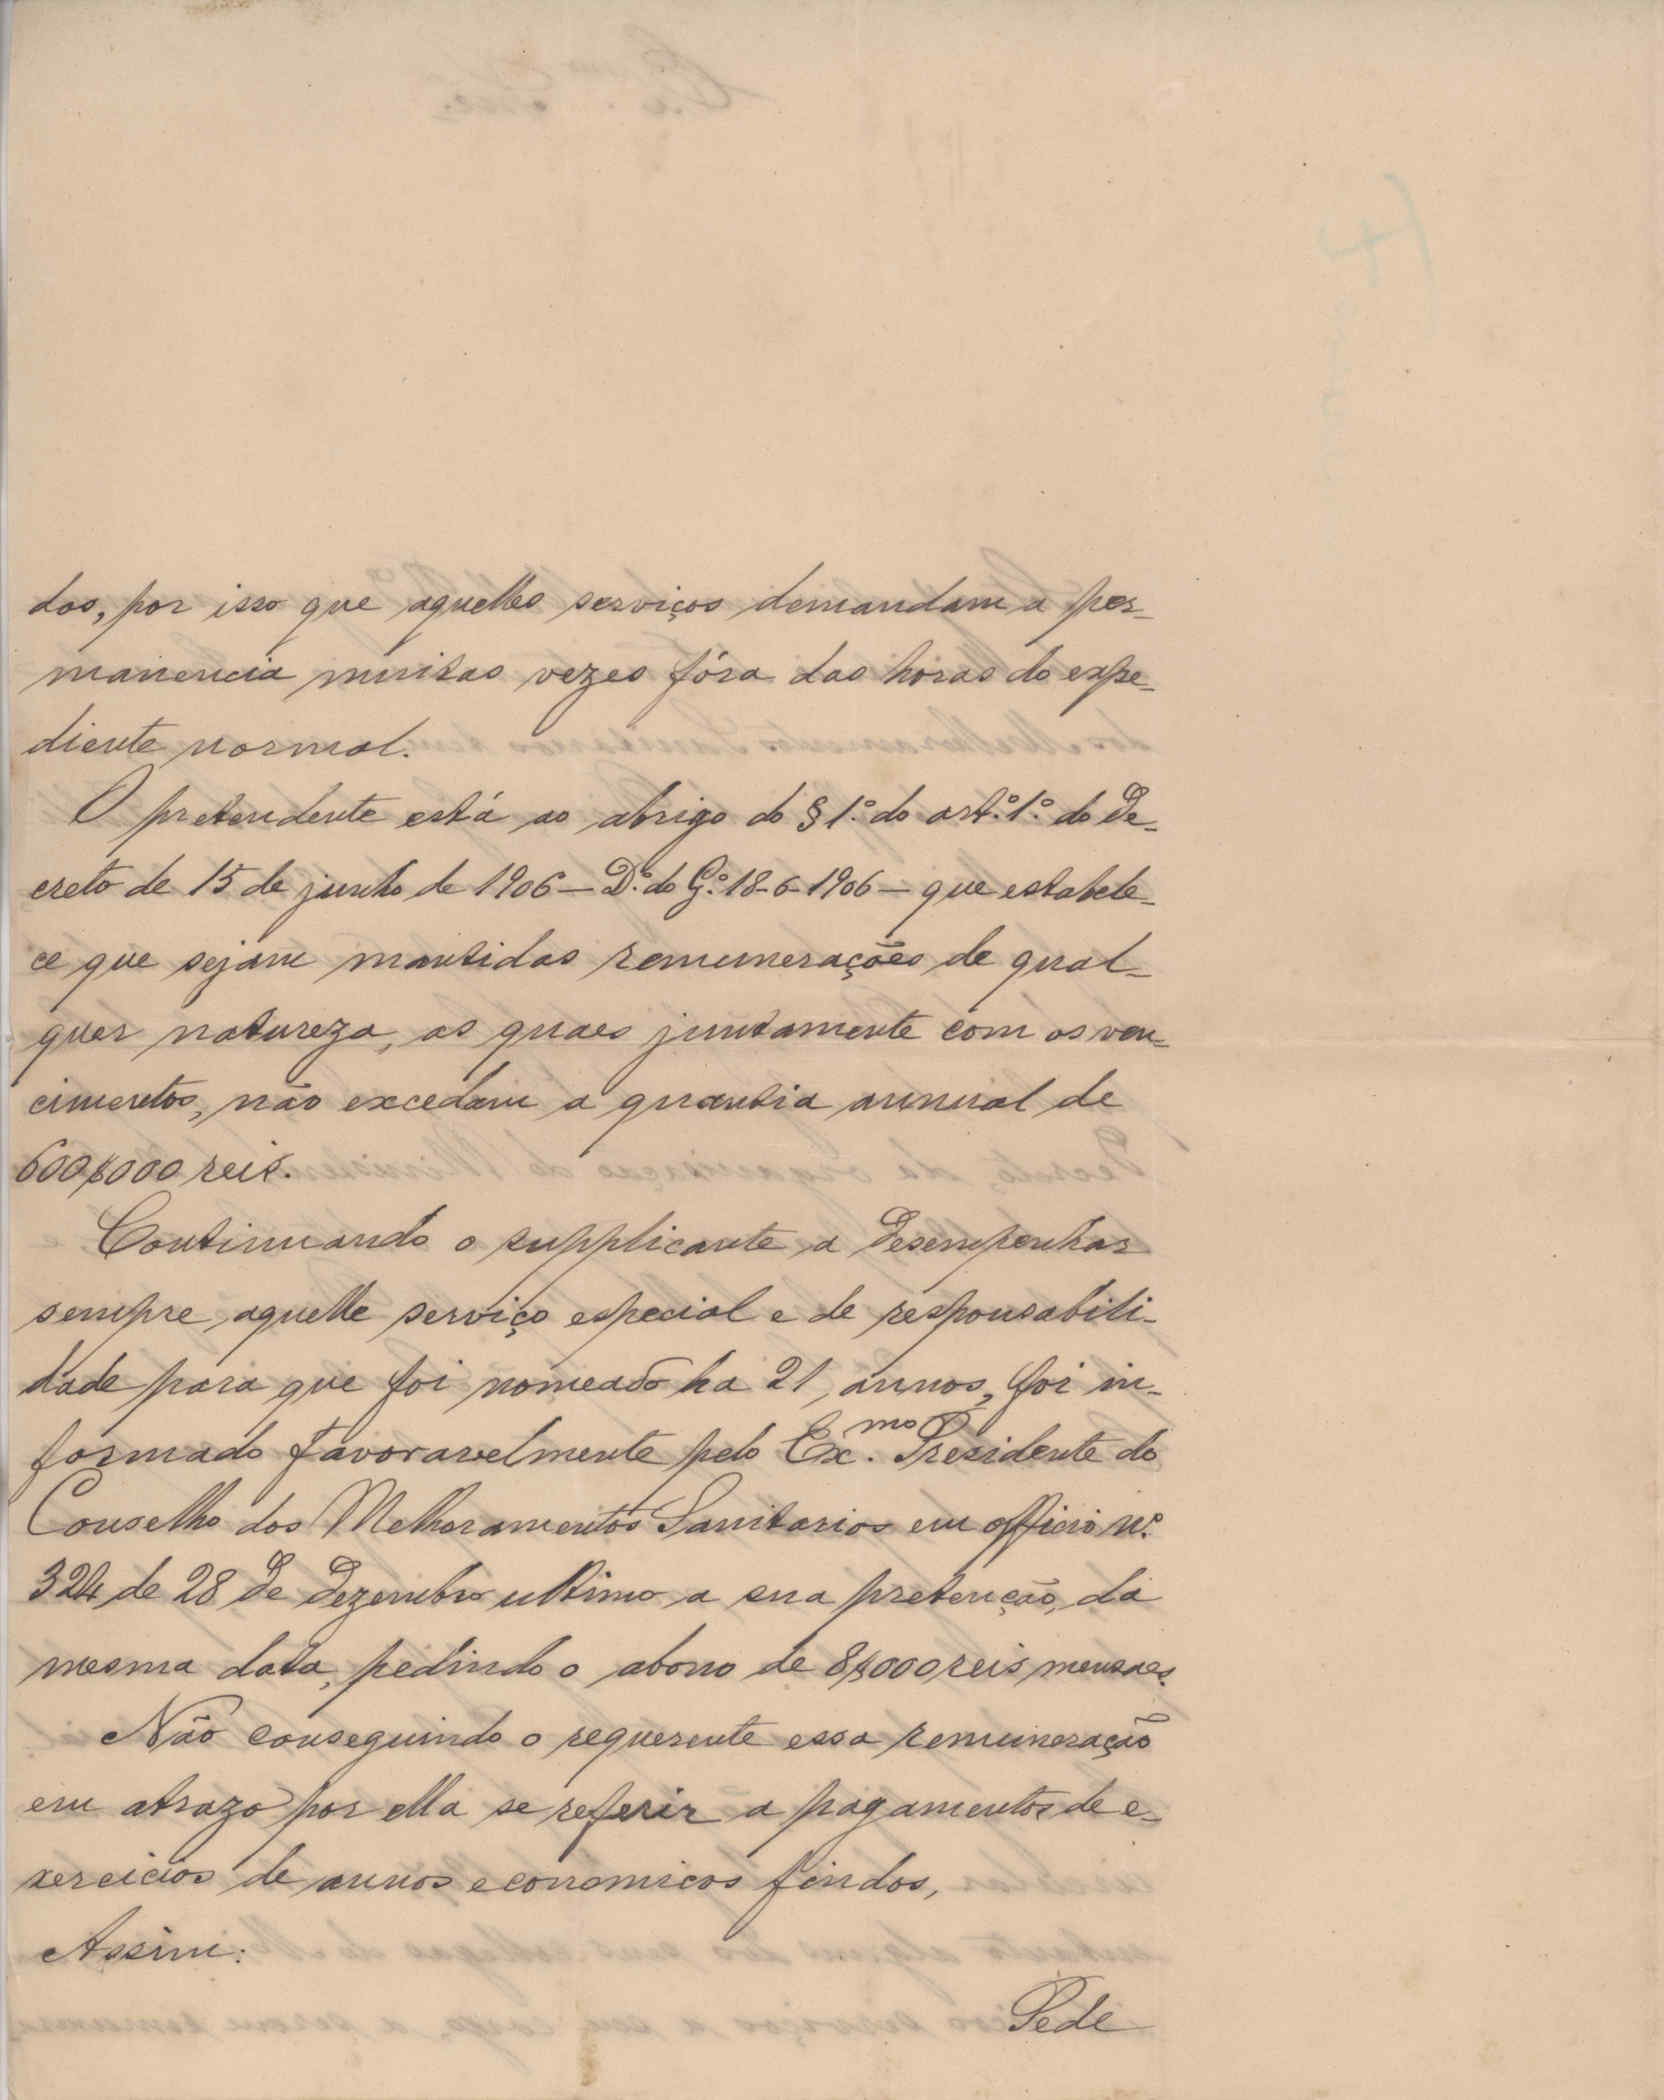 dos, por isso que aquelles serviços demandam a per-
manencia muitas vezes fóra das horas do expe-
diente normal.
O pretendente está ao abrigo do § 1.º do art.º 1.º do De-
creto de 15 de junho de 1906 — D.º do G.º 18-6-1906 — que estabele-
ce que sejam mantidas remunerações de qual-
quer natureza, as quaes juntamente com os ven-
cimentos, não excedam a quantia annual de
600$000 reis.
Continuando o supplicante a desempenhar
sempre aquelle serviço especial e de responsabili-
dade para que foi nomeado ha 21 annos, foi in-
formado favoravelmente pelo Ex.mo Presidente do
Conselho dos Melhoramentos Sanitarios em officio n.º
324 de 28 de Dezembro ultimo a sua pretenção, da
mesma data, pedindo o abono de 8$000 reis mensaes.
Não conseguindo o requerente essa remuneração
em atrazo por ella se referir a pagamentos de e-
xercicios de annos economicos findos,
Assim:
Pede